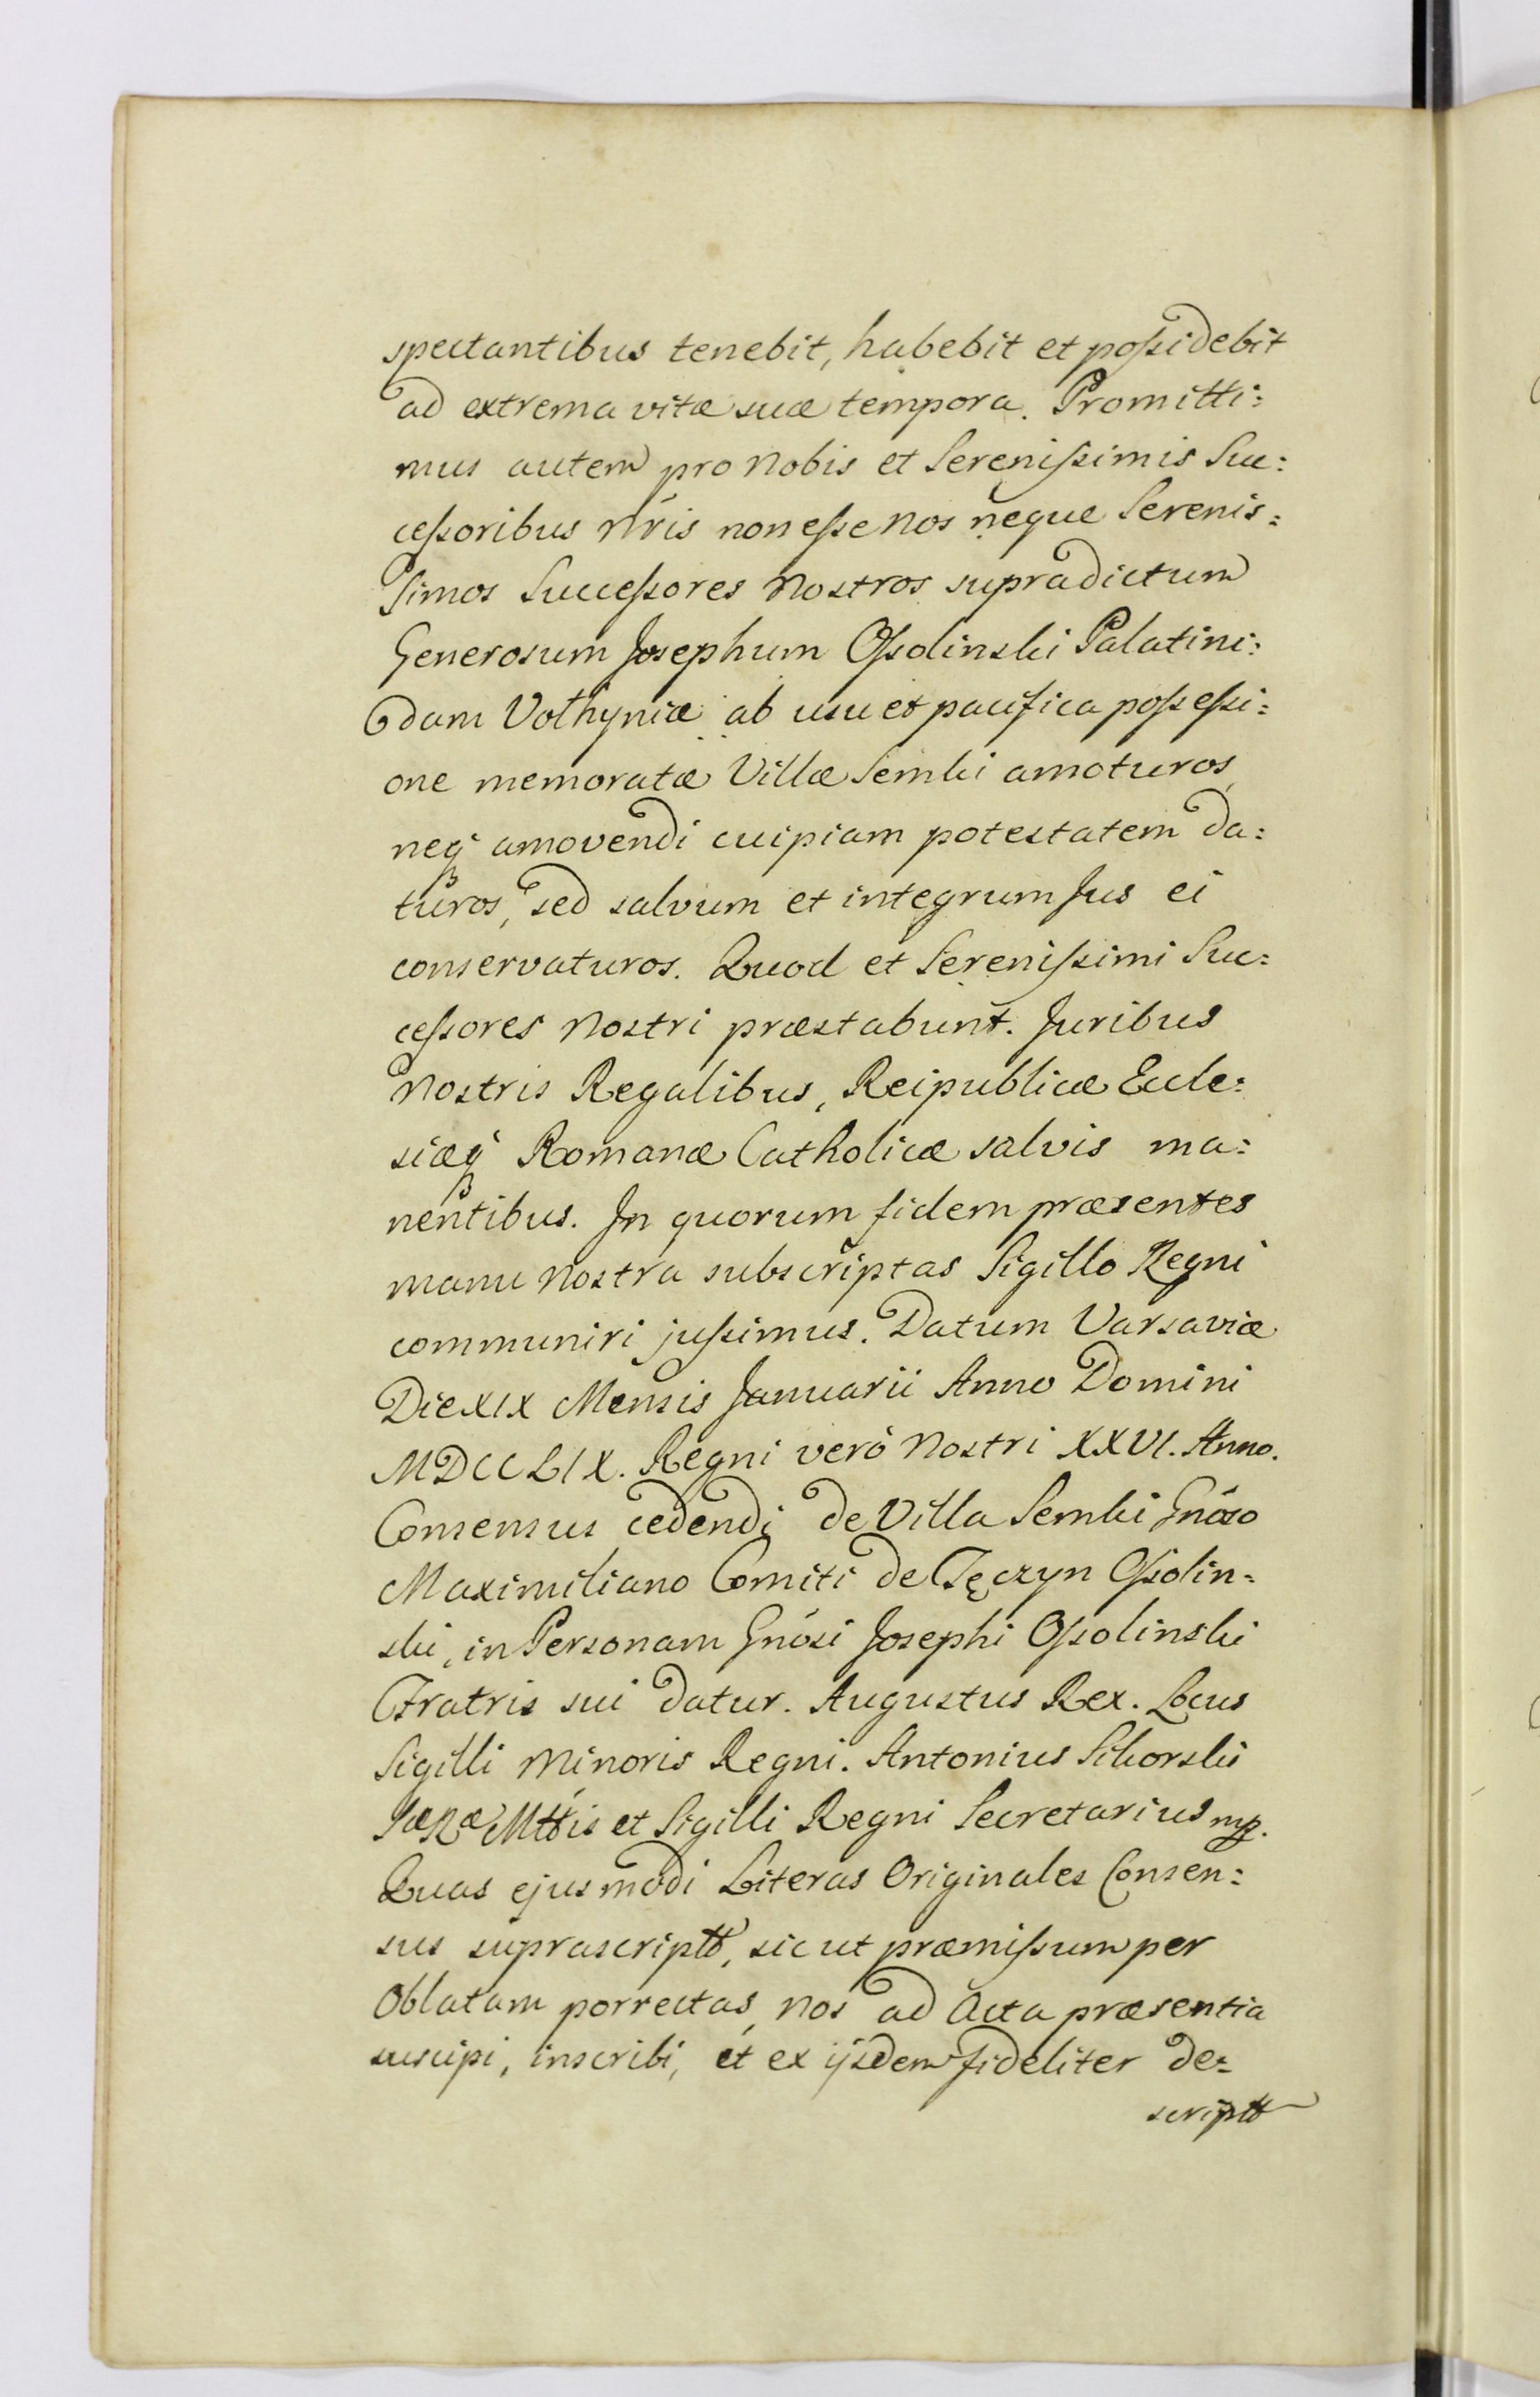 spectantibus tenebit, habebit et possidebit
ad extrema vitæ suæ tempora. Promitti:
mus autem pro Nobis et Serenissimis Suc:
cessoribus Nr̃is non esse Nos neque Serenis:
simos Successores Nostros supradictum
Generosum Josephum Ossolinski Palatini:
dam Volhyniæ ab usu et pacifica possessi:
one memoratæ Villæ Semki amoturos,
neq́ amovendi cuipiam potestatem da:
turos, sed salvum et integrum Jus ei
conservaturos. Quod et Serenissimi Suc:
cessores Nostri præstabunt. Juribus
Nostris Regalibus, Reipublicæ Eccle:
siæq́ Romanæ Catholicæ salvis ma:
nentibus. In quorum fidem præsentes
manu Nostra subscriptas Sigillo Regni
communiri jussimus. Datum Varsaviæ
Die XIX Mensis Januarii Anno Domini
MDCCLIX. Regni verò Nostri XXVI. Anno.
Consensus cedendi de Villa Semki Gnoso
Maximiliano Comiti de Tęczyn Ossolin=
ski, in Personam Gnosi Josephi Ossolinski
Fratris sui datur. Augustus Rex. Locus
Sigilli Minoris Regni. Antonius Sikorski
SæRæMttis et Sigilli Regni Secretarius mp.
Quas ejusmodi Literas Originales Consen:
sus suprascriptt, sicut præmissum per
Oblatam porrectas, Nos ad Acta præsentia
suscipi, inscribi, et ex ijsdem fideliter de=
scriptt